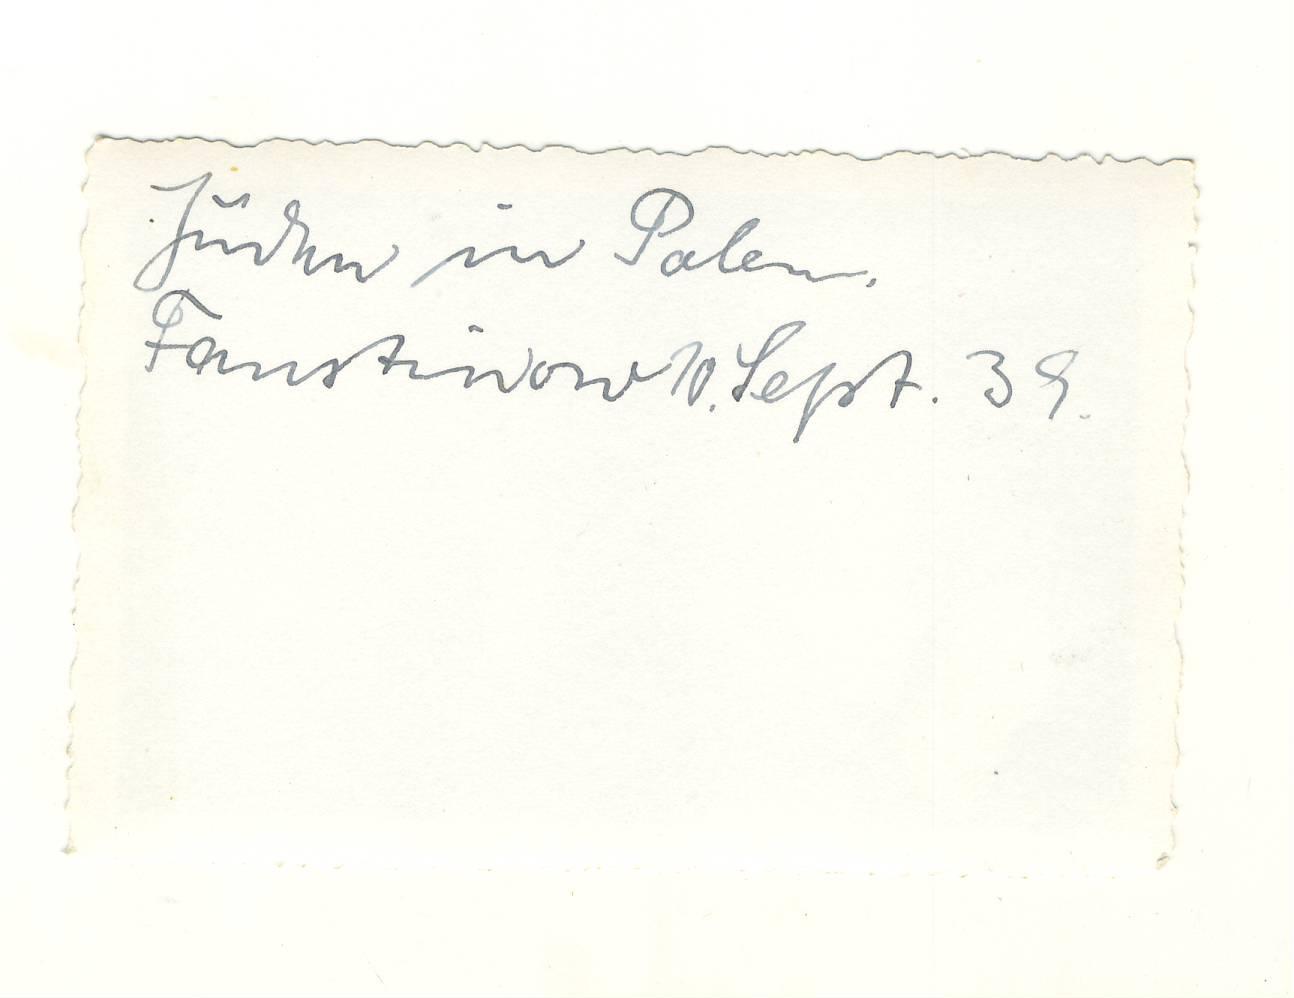 Juden in Polen.
Faustinow 10. Sept. 39.